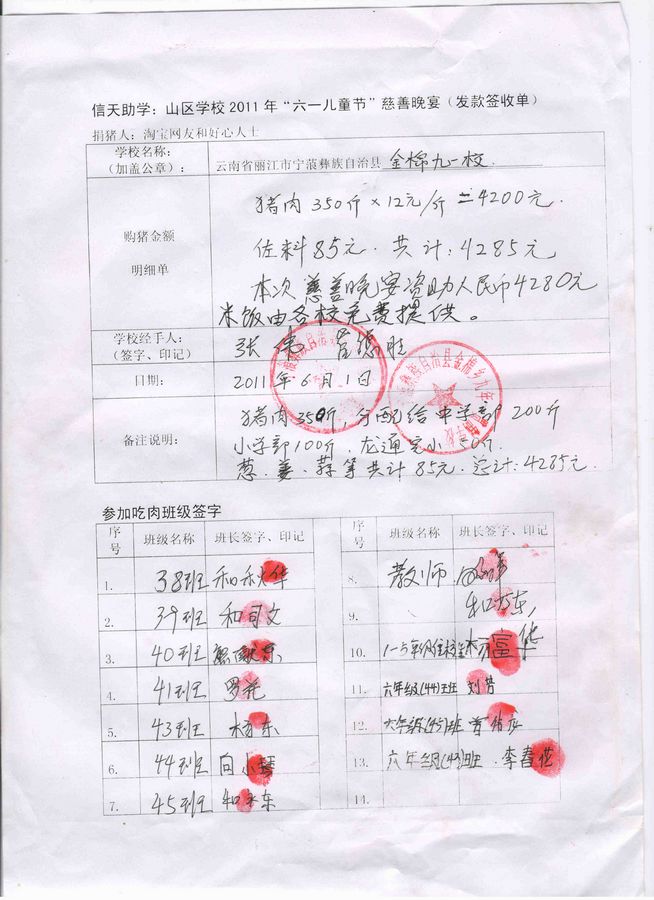 信天助学：山区学校2011年“六一儿童节”慈善晚宴（发款签收单）
捐猪人：淘宝网友和好心人士
学校名称：
（加盖公章）：
云南省丽江市宁蒗彝族自治县 金棉九一校
购猪金额
明细单
猪肉350斤×12元/斤=4200元.
佐料85元. 共计:4285元
本次慈善晚宴资助人民币4280元
米饭由各校免费提供。
学校经手人：
（签字、印记）
张
胜
日期：
2011年6月1日
备注说明：
猪肉350斤,分配给中学部200斤
小学部100斤.龙通完小50斤.
葱.姜.蒜等共计85元.总计:4285元.
参加吃肉班级签字
序号 班级名称 班长签字、印记
1. 38班 和秋华
2. 39班 和司文
3. 40班
4. 41班 罗花
5. 43班 杨东
6. 44班 向小琴
7. 45班 和永东
序号 班级名称 班长签字、印记
8. 教师
9.
10. 1-5年级住校生
11. 六年级(44)班 刘芳
12. 六年级(45)班
13. 六年级(43)班. 李春花
14.